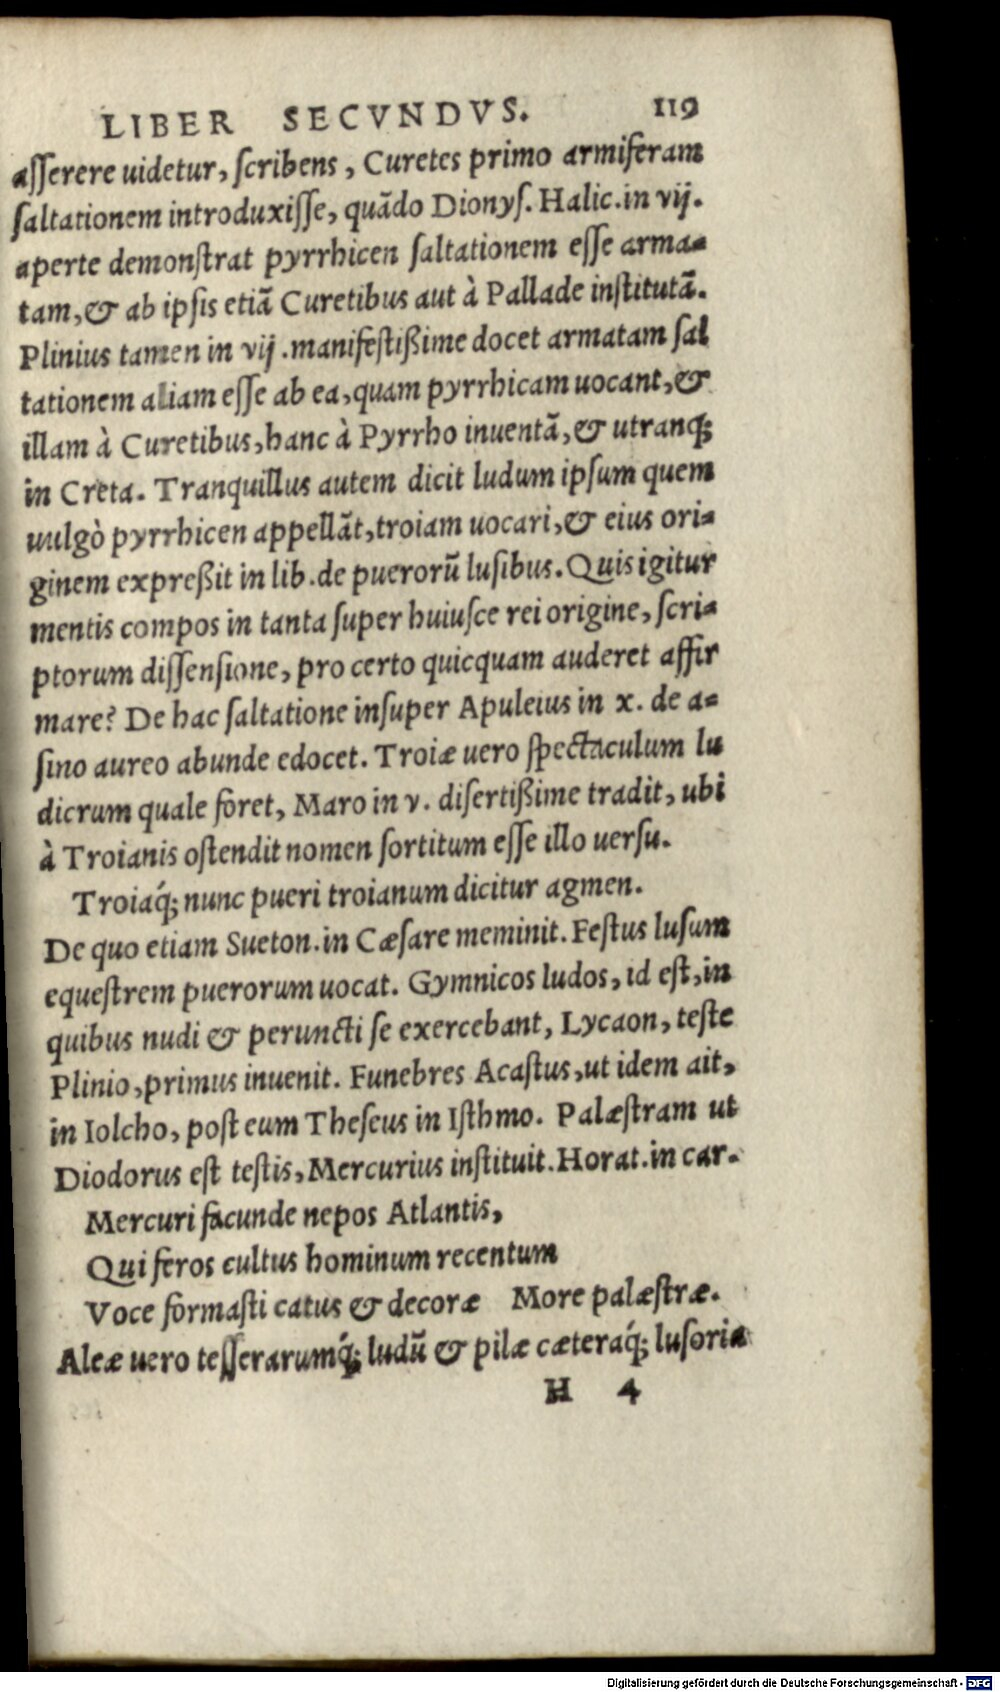 LIBER SECVNDVS. 119
aſſerere uidetur, ſcribens, Curetes primo armiferam
ſaltationem introduxiſſe, quādo Dionyſ. Halic. in vij.
aperte demonſtrat pyrrhicen ſaltationem eſſe arma=
tam, & ab ipſis etiā Curetibus aut à Pallade inſtitutā.
Plinius tamen in vij. manifeſtißime docet armatam ſal
tationem aliam eſſe ab ea, quam pyrrhicam uocant, &
illam à Curetibus, hanc à Pyrrho inuentā, & utranq;
in Creta. Tranquillus autem dicit ludum ipſum quem
uulgò pyrrhicen appellāt, troiam uocari, & eius ori=
ginem expreßit in lib. de puerorū luſibus. Quis igitur
mentis compos in tanta ſuper huiuſce rei origine, ſcri=
ptorum diſſenſione, pro certo quicquam auderet affir
mare? De hac ſaltatione inſuper Apuleius in x. de a=
ſino aureo abunde edocet. Troiæ uero ſpectaculum lu
dicrum quale foret, Maro in v. diſertißime tradit, ubi
à Troianis oſtendit nomen ſortitum eſſe illo uerſu.
Troiaq́; nunc pueri troianum dicitur agmen.
De quo etiam Sueton. in Cæſare meminit. Feſtus luſum
equeſtrem puerorum uocat. Gymnicos ludos, id eſt, in
quibus nudi & peruncti ſe exercebant, Lycaon, teſte
Plinio, primus inuenit. Funebres Acaſtus, ut idem ait,
in Iolcho, poſt eum Theſeus in Iſthmo. Palæſtram ut
Diodorus eſt teſtis, Mercurius inſtituit. Horat. in car.
Mercuri facunde nepos Atlantis,
Qui feros cultus hominum recentum
Voce formaſti catus & decoræ More palæſtræ.
Aleæ uero teſſerarumq́; ludū & pilæ cæteraq́; luſoria
H 4
Digitalisierung gefördert durch die Deutsche Forschungsgemeinschaft - DFG